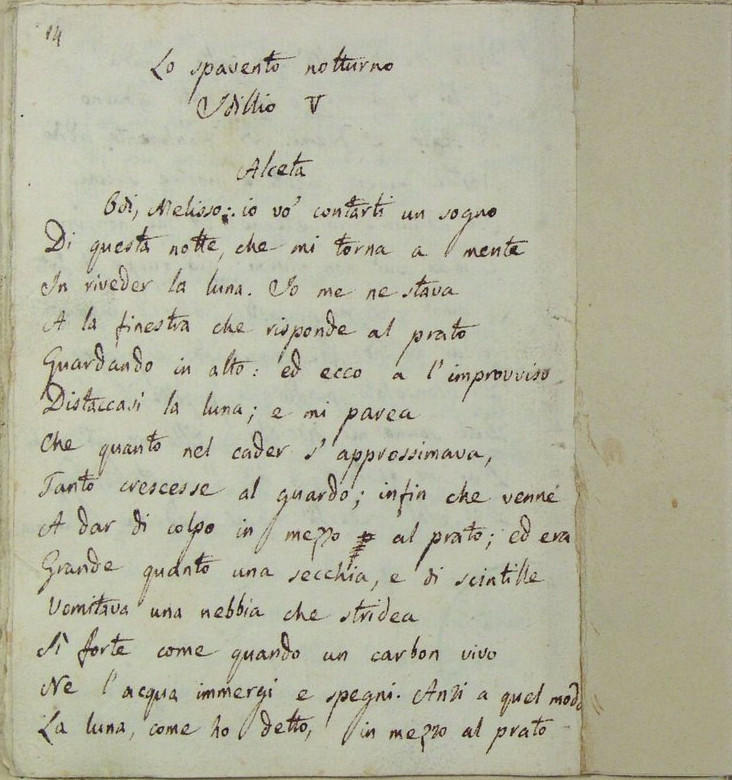 14
Lo spavento notturno
Idillio V
Alceta
Odi, Melisso: io vo' contarti un sogno
Di questa notte, che mi torna a mente
In riveder la luna. Io me ne stava
A la finestra che risponde al prato
Guardando in alto: ed ecco a l'improvviso
Distaccasi la luna; e mi parea
Che quanto nel cader s'approssimava,
Tanto crescesse al guardo; infin che venne
A dar di colpo in mezzo al prato; ed era
Grande quanto una secchia, e di scintille
Vomitava una nebbia che stridea
Sì forte come quando un carbon vivo
Ne l'acqua immergi e spegni. Anzi a quel modo
La luna, come ho detto, in mezzo al prato